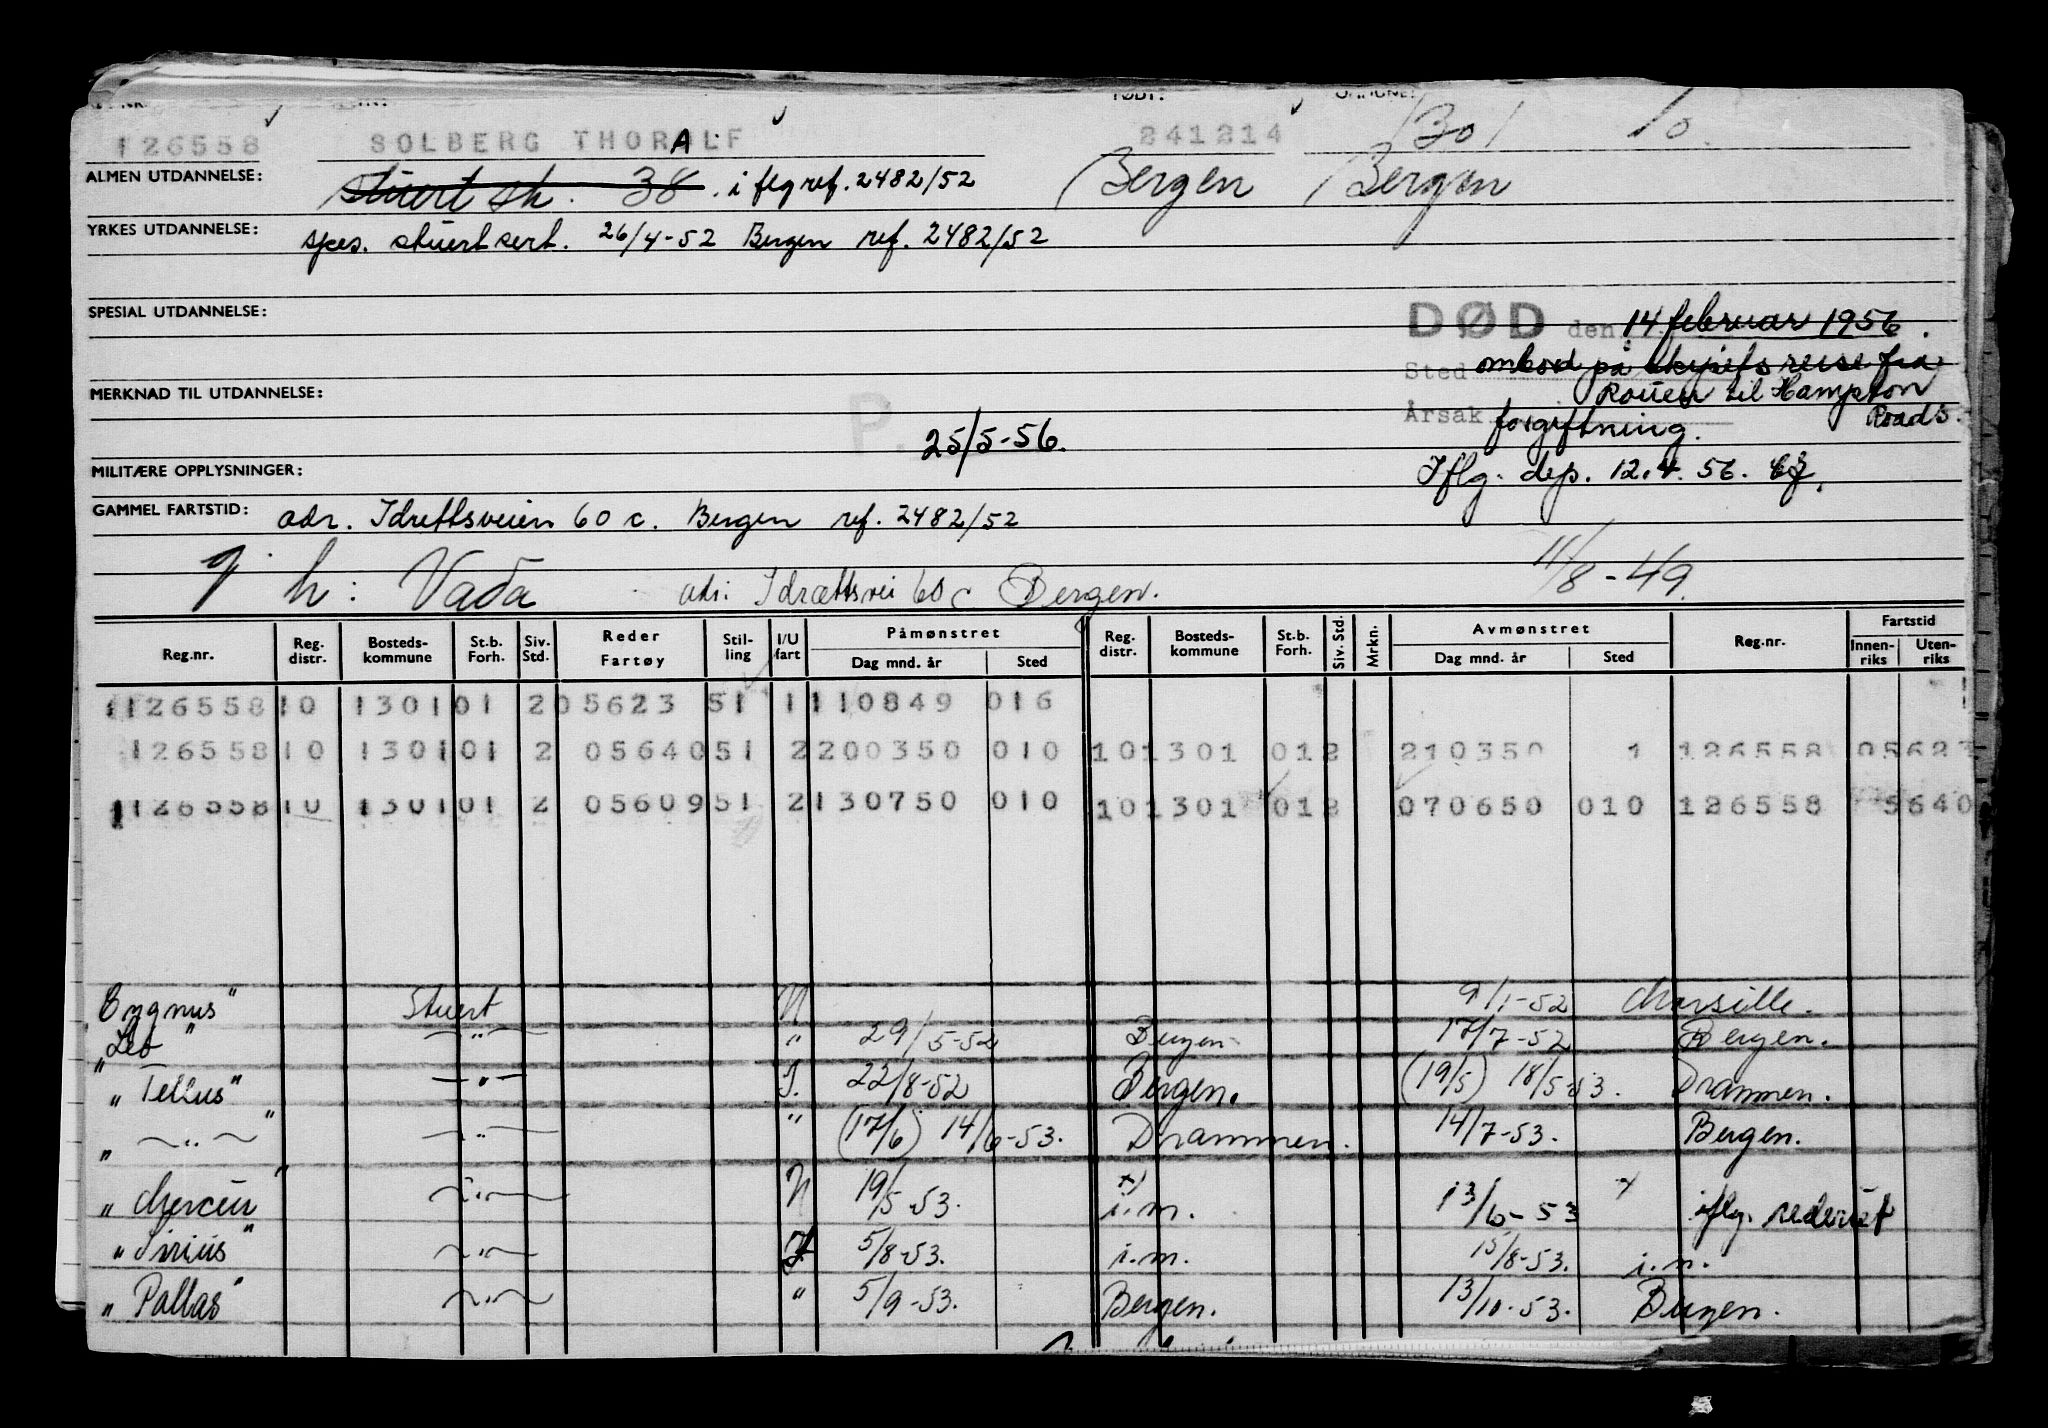 FØDT:
126558 SOLBERG THORALF A 241214 1301 10.
ALMEN UTDANNELSE: stuert sk. 38. i flg ref. 2482/52 Bergen Bergen
YRKES UTDANNELSE: spes. stuert sert. 26/4-52 Bergen ref. 2482/52
SPESIAL UTDANNELSE:
DØD den 14 februar 1956.
Sted ombord på skipets reise fra
MERKNAD TIL UTDANNELSE: Rouen til Hampton
P. Årsak forgiftning. Roads.
25/5-56.
MILITÆRE OPPLYSNINGER: Iflg. dep. 12.4.56.
GAMMEL FARTSTID: adr. Idrettsveien 60 c. Bergen ref. 2482/52
g. h: Vada adr: Idrættsvei 60c Bergen. 11/8-49.
Reg.nr. Reg. distr. Bosteds-kommune St.b. Forh. Siv. Std. Reder Fartøy Stil-ling I/U fart Påmønstret Dag mnd. år Sted Reg. distr. Bosteds-kommune St.b. Forh. Siv. Std. Mrkn. Avmønstret Dag mnd. år Sted Reg.nr. Fartstid Innen-riks Uten-riks
126558 10 1301 01 2 05623 51 1 110849 016
126558 10 1301 01 2 05640 51 2 200350 010 10 1301 01 2 210350 1 126558 05623
126558 10 1301 01 2 05609 51 2 130750 010 10 1301 01 2 070650 010 126558 5640
Cygnus" Stuert U 9/1-52 Marseille.
"Leo" —"— " 29/5-52 Bergen 17/7-52 Bergen.
"Tellus" —"— I. 22/8-52 Bergen. (19/5) 18/5-53. Drammen.
" —"— " —"— " (17/6) 14/6-53. Drammen. 14/7-53. Bergen.
"Mercur" —"— U 19/5-53. x) i.m. 13/6-53 x iflg. rederiet
"Sirius" —"— I 5/8-53. i.m. 15/8-53. i.m.
"Pallas" —"— " 5/9-53. Bergen. 13/10-53. Bergen.